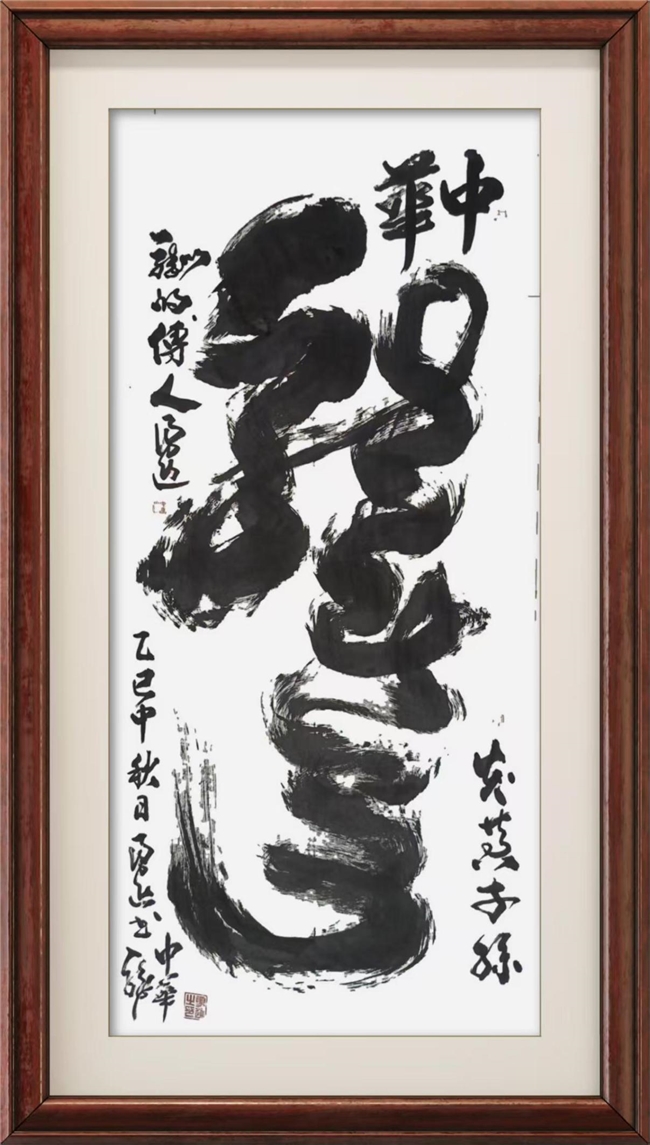 中華
龍
炎黃子孫
龍的傳人
乙巳中秋日
书
中華
龍